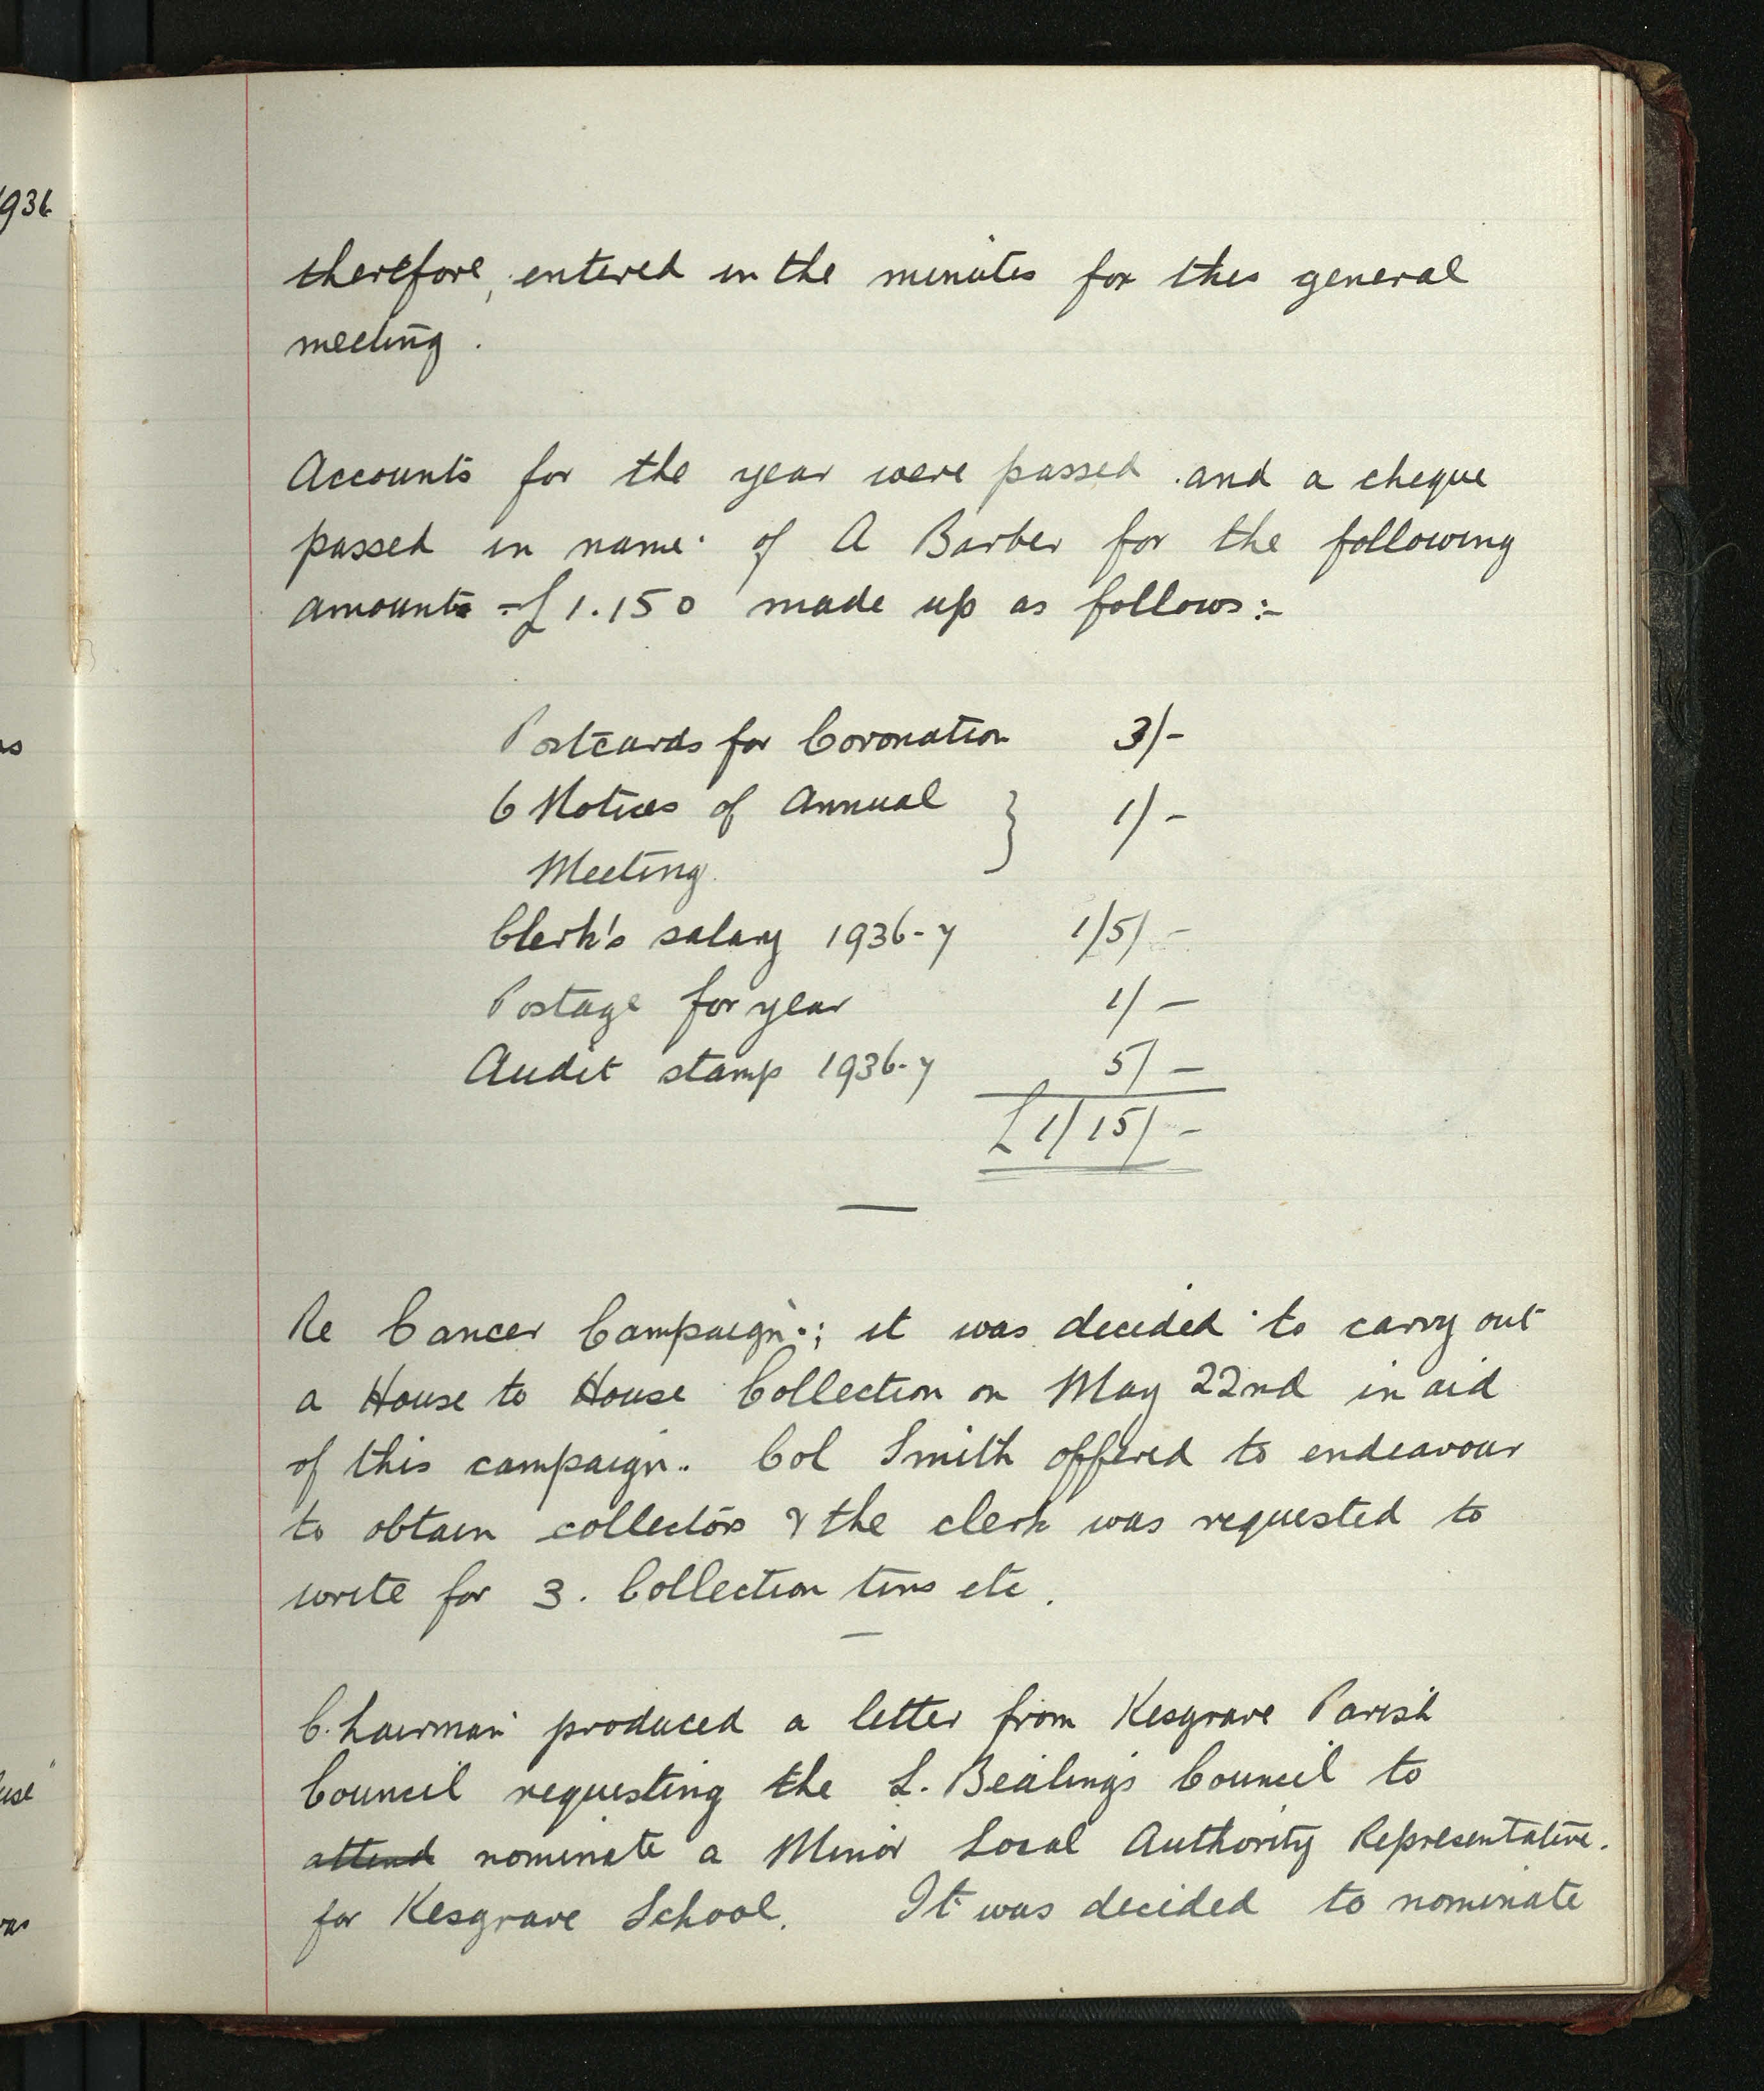 1936
therefore, entered in the minutes for this general
meeting.
Accounts for the year were passed and a cheque
passed in name of A Barber for the following
amounts - £1.15 0 made up as follows:-
Postcards for Coronation 3/-
6 Notices of Annual } 1/-
Meeting.
Clerk's salary 1936-7 1/5/-
Postage for year 1/-
Audit stamp 1936-7 5/-
£1/15/-
Re Cancer Campaign.; it was decided to carry out
a House to House Collection on May 22nd in aid
of this campaign.. Col Smith offered to endeavour
to obtain collectors & the clerk was requested to
write for 3. Collection tins etc.
Chairman produced a letter from Kesgrave Parish
Council requesting the L. Bealings Council to
attend nominate a Minor Local Authority Representative.
for Kesgrave School. It was decided to nominate